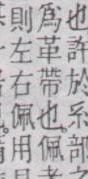 也許於系部之
爲革帶也佩
則左右佩用